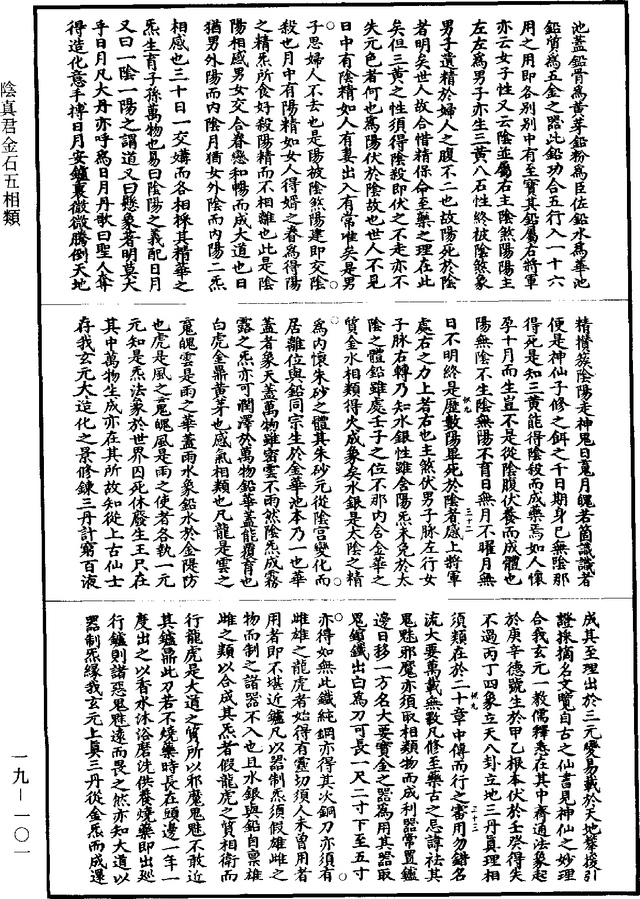 池蓋鉛骨爲黃芽鉛粉爲臣佐鉛水爲華池
鉛質爲五金之器此鉛功合五行入一十六
用之用即各別別中有至寶其鉛屬右將軍
亦云女子性又云陰並屬右主陰煞陽陽主
左左爲男子亦生三黃八石性終被陰煞象
男子遺精於婦人之腹不二也故陽死於陰
者明矣世人故合惜精保命至藥之理在此
矣但三黃之性須得陰殺即伏之不走亦不
失元色者何也爲陽伏於陰故也世人不見
日中有陰精如人有妻出入有常唯矣是男
子思婦人不去也是陽被陰煞陽建即交陰
殺也月中有陽精如女人得婿之眷爲得陽
之精炁所食好殺陽精而不相離也此是陰
陽相感男女交合眷戀和暢而成大道也日
猶男外陽而內陰月猶女外陰而內陽二炁
相感也三十日一交媾而各相採其精華之
炁生育子孫萬物也易曰陰陽之義配日月
又曰一陰一陽之謂道又曰懸象著明莫大
乎日月凡大丹亦呼爲日月丹歌曰聖人奪
得造化意手摶日月安鑪裏微微騰倒天地
精攢蔟陰陽走神鬼日䰟月魄若箇識識者
便是神仙子修之餌之千日期身已無陰那
得死是知三黃能得陰殺而成藥焉如人懷
孕十月而生豈不是從陰腹伏養而成體也
陽無陰不生陰無陽不育日無月不曜月無
日不明終是歷數陽畢死於陰者感上將軍
處右之力上者右也主煞伏男子脉左行女
子脉右轉乃知水銀性雖含陽炁未免於太
陰之體鉛雖處壬子之位不那內合金華之
質金水相類得火成象矣水銀是太陰之精
爲內懷朱砂之體其朱砂元從陰宮變化而
居離位與鉛同宗生於金華池本乃一也華
蓋者象天蓋萬物雖密雲不雨然陰炁成霧
露之炁亦可潤澤於萬物鉛華蓋能覆育也
白虎金鼎黃芽也感氣相類也凡龍是雲之
䰟魄雲是雨之華蓋雨水象鉛水於金隄防
也虎是風之䰟魄風是雨之使者各執一元
元知是炁法象於世界囚死休廢生王尺在
其中萬物生成亦在其所故知從上古仙士
存我玄元大造化之景修鍊三丹計窮百液
成其至理出於三元變易載於天地引
證採摘名文覽自古之仙書見神仙之妙理
合我玄元一教儒釋悉在其中齊通法象起
於庚辛德號生於甲乙根本伏於壬癸得失
不過丙丁四象立天八卦立地三丹真理相
須類在於二十章中傳而行之審用勿錯名
流大要萬載無斁凡修至藥古之忌諱祛其
鬼魅邪魔亦須取相類物而成利器常置鑪
邊日移一方名大要寶金之器爲用其器取
鬼鑌鐵出白爲刀可長一尺二寸下至五寸
亦得如無此鐵純鋼亦得其次鋼刀亦須有
雌雄之龍虎者始得有靈切須人未曾用者
用者即不堪近鑪凡以器制炁須假雄雌之
物而制之諸器不入也且水銀與鉛自禀雄
雌之類以合成其炁者假龍虎之質相衛而
行龍虎是大道之質所以邪魔鬼魅不敢近
其鑪鼎此刀若不燒藥時長在頭邊一年一
度出之以香水沐浴磨洗供養燒藥即出巡
行鑪則諸惡鬼魅遠而畏之然亦知大道以
器制炁緣我玄元上真三丹從金炁而成還
陰真君金石五相類
一九－一〇一